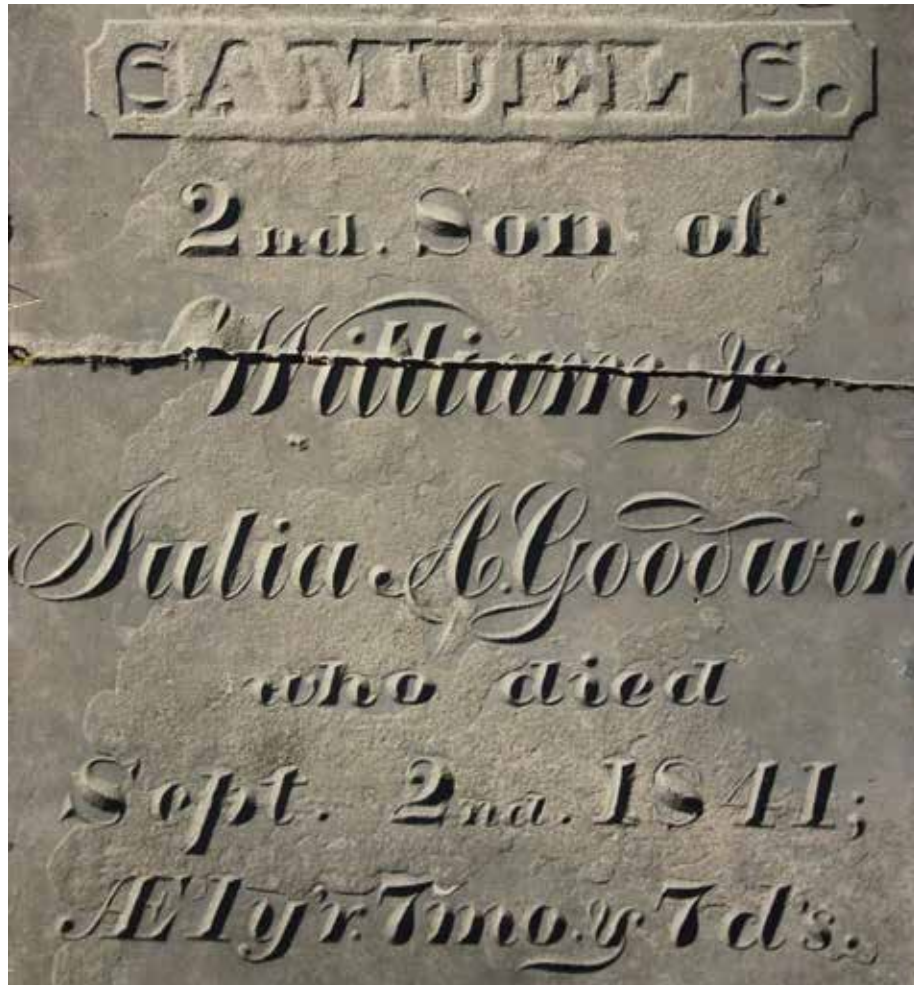 SAMUEL S.
2nd. Son of
William, &
Julia A. Goodwin
who died
Sept. 2nd. 1841;
Æ 1 y'r. 7 mo. & 7 d's.